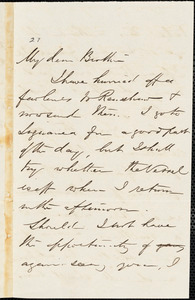 My dear Brother
I have hurried off a
few lines to Renshaw &
now send them. I go to
for a good part
of the day, but I shall
try whether the Vessel
is off when I return
in the afternoon
Should I not have
the opportunity of
again seeing you, I